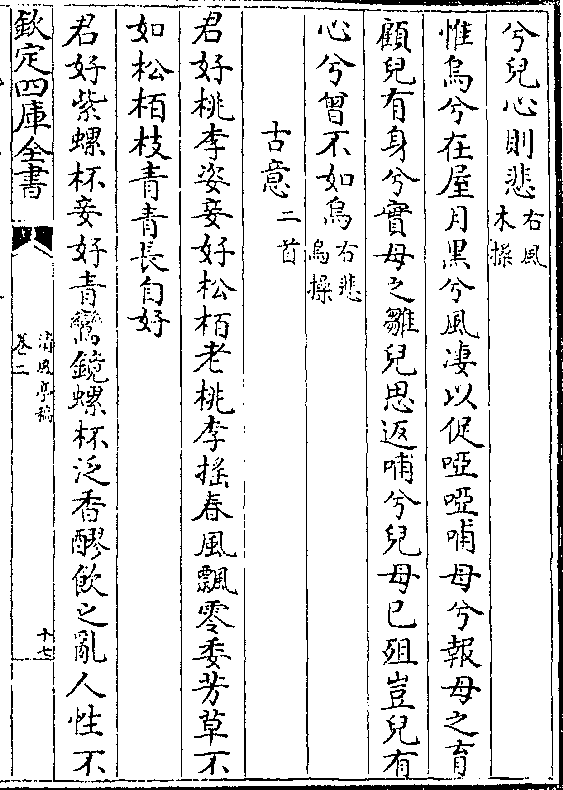 兮兒心則悲右風
木操
惟烏兮在屋月黑兮風凄以促啞啞哺母兮報母之育
顧兒有身兮實母之雛兒思返哺兮兒母已殂豈兒有
心兮曾不如烏右悲
烏操
古意二首
君好桃李姿妾好松栢老桃李搖春風飄零委芳草不
如松栢枝青青長自好
君好紫螺杯妾好青鸞鏡螺杯泛香醪飲之亂人性不
欽定四庫全書
清風亭稿
卷二
十七